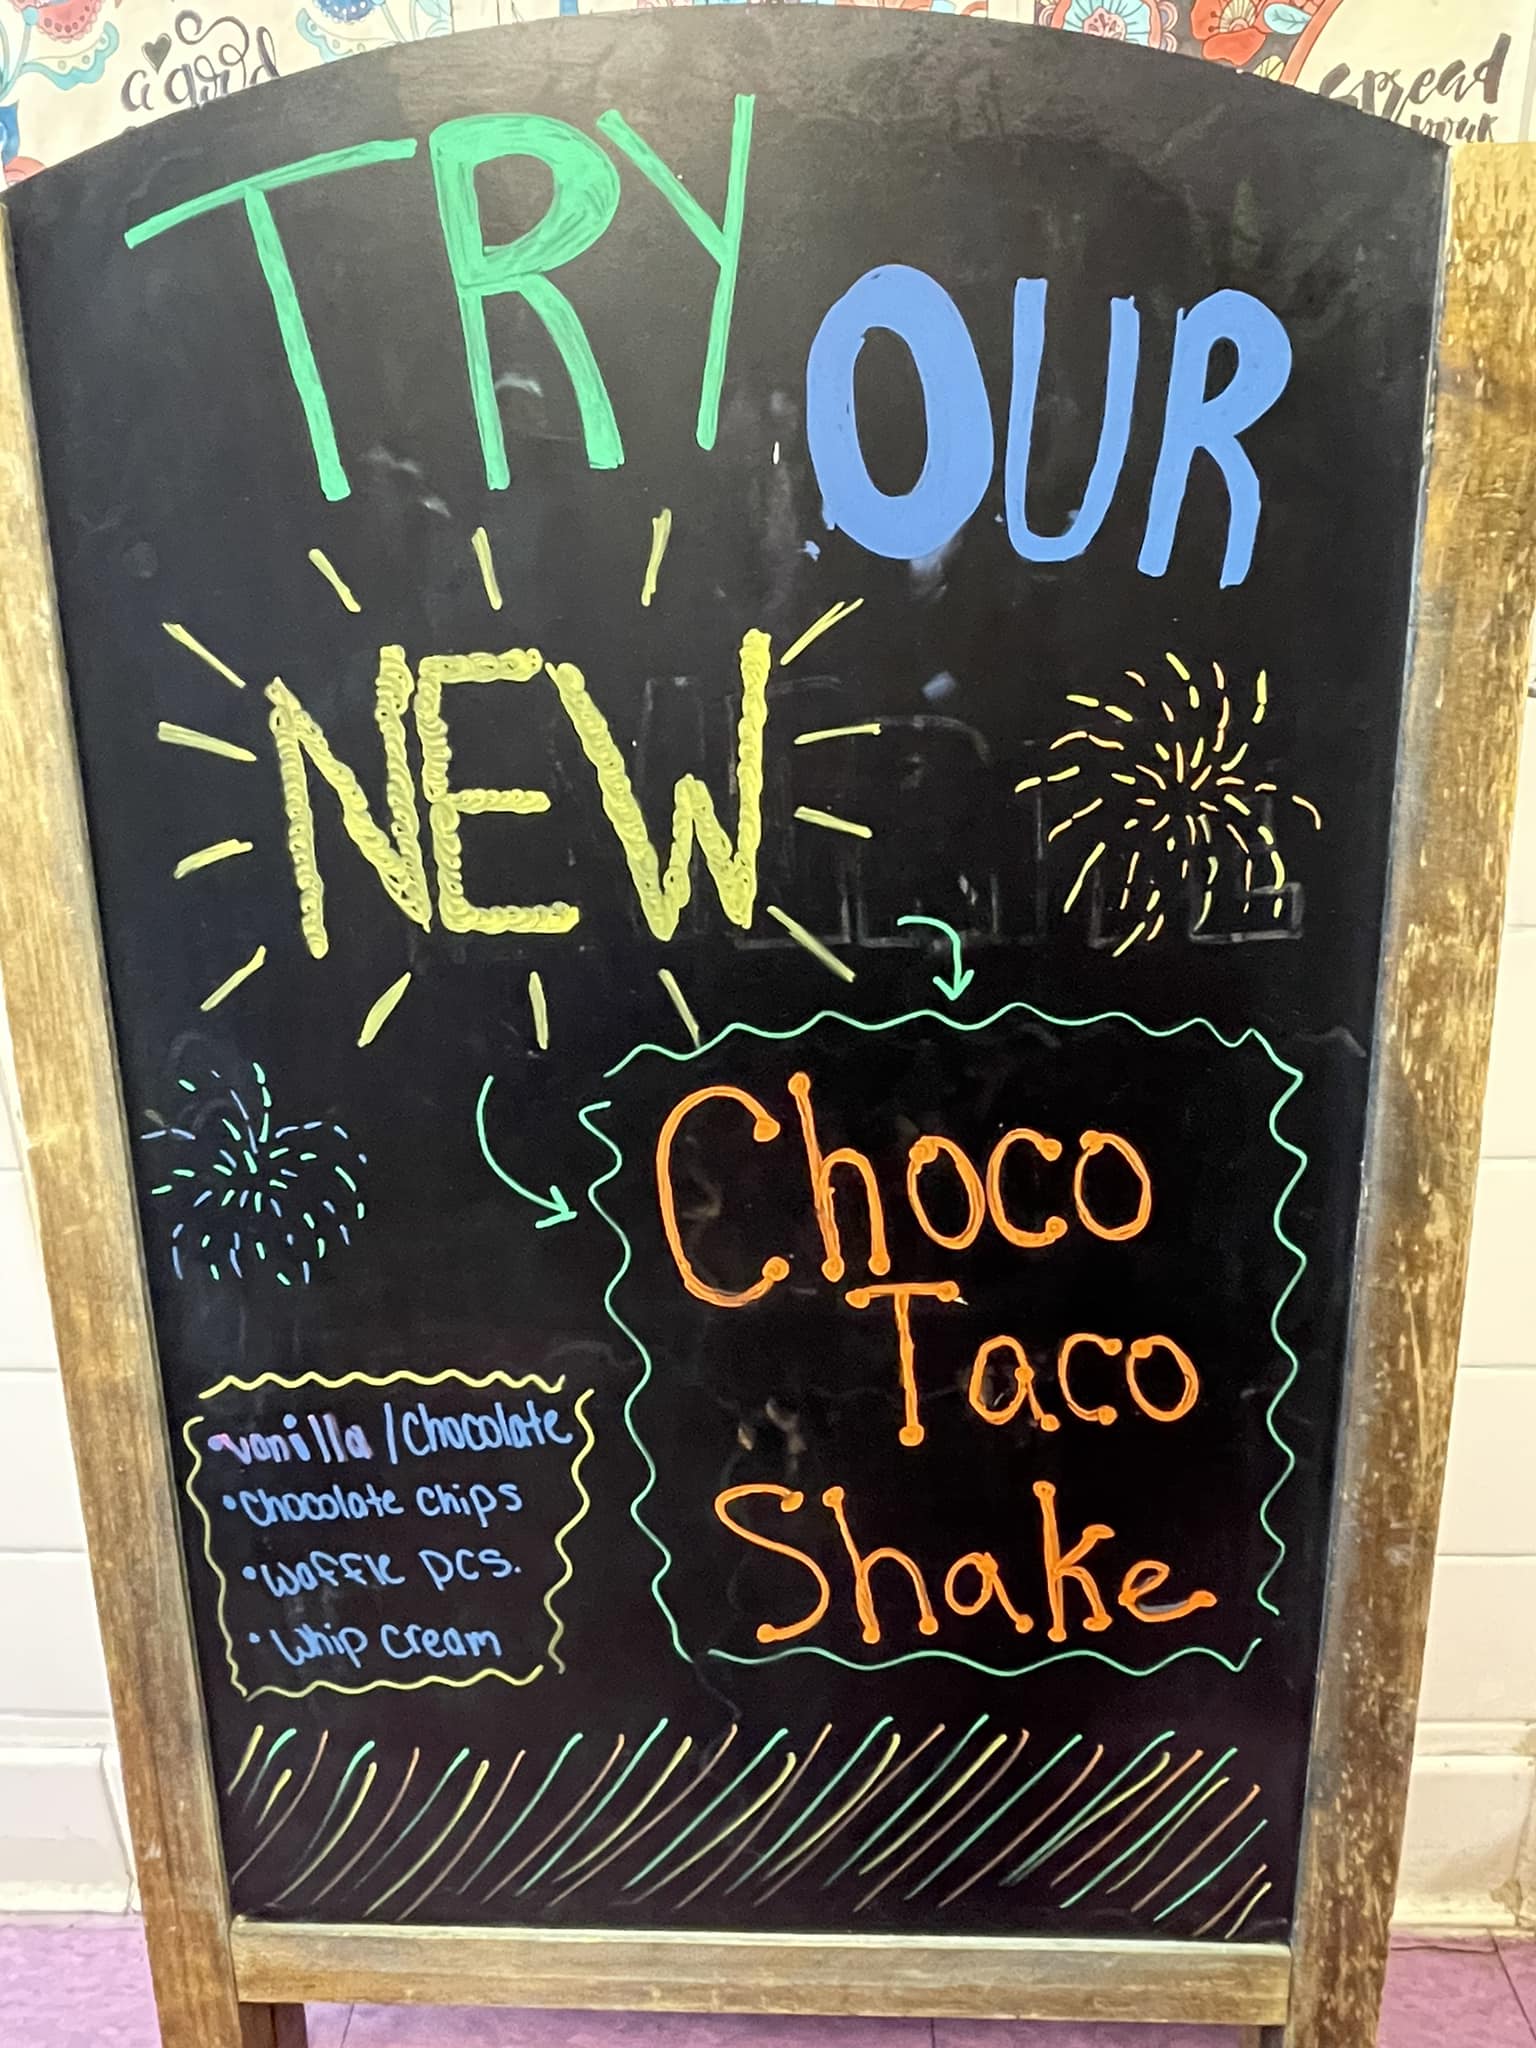 a good
spread
your
TRY
OUR
NEW
Choco
Taco
Shake
•vanilla/chocolate
•chocolate chips
•waffle pcs.
•whip cream